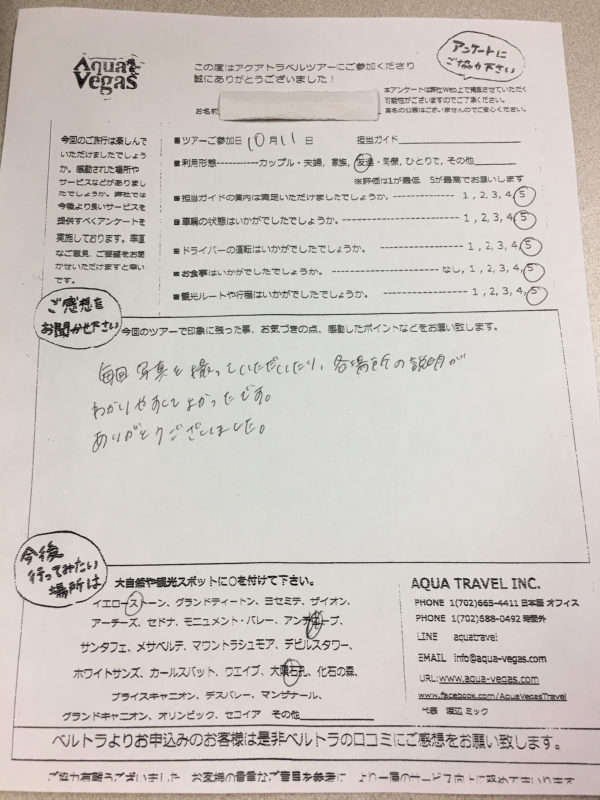 Aqua
Vegas
この度はアクアトラベルツアーにご参加くださり
誠にありがとうございました！
アンケートに
ご協力下さい
本アンケートは弊社Web上で掲載させていただく
可能性がございますのでご了承ください。
実名の公開はございませんのでご安心ください。
お名前
今回のご旅行は楽しんで
いただけましたでしょう
か。感動された場所や
サービスなどがありまし
たでしょうか。弊社では
今後より良いサービスを
提供すべくアンケートを
実施しております。率直
なご意見、ご要望をお聞
かせいただけますと幸い
です。
■ツアーご参加日 10月11日 担当ガイド
■利用形態------------カップル・夫婦, 家族, 友達・同僚, ひとりで, その他
※評価は1が最低 5が最高でお願いします
■担当ガイドの案内は満足いただけましたでしょうか。 ---------- 1, 2, 3, 4, 5
■車輛の状態はいかがでしたでしょうか。 ---------- 1, 2, 3, 4, 5
■ドライバーの運転はいかがでしたでしょうか。 ---------- 1, 2, 3, 4, 5
■お食事はいかがでしたでしょうか。 ---------- なし, 1, 2, 3, 4, 5
■観光ルートや行程はいかがでしたでしょうか。 ---------- 1, 2, 3, 4, 5
ご感想を
お聞かせ下さい
今回のツアーで印象に残った事、お気づきの点、感動したポイントなどをお願い致します。
毎回 写真を撮っていただいたり、各場所の説明が
わかりやすくてよかったです。
ありがとうございました。
今後
行ってみたい
場所は
大自然や観光スポットに○を付けて下さい。
イエローストーン、グランドティートン、ヨセミテ、ザイオン、
アーチーズ、セドナ、モニュメント・バレー、アンテロープ、
サンタフェ、メサベルデ、マウントラシュモア、デビルスタワー、
ホワイトサンズ、カールスバット、ウエイブ、大隕石孔、化石の森、
ブライスキャニオン、デスバレー、マンザナール、
グランドキャニオン、オリンピック、セコイア その他
AQUA TRAVEL INC.
PHONE 1(702)665-4411 日本語 オフィス
PHONE 1(702)588-0492 時間外
LINE aquatravel
EMAIL info@aqua-vegas.com
URL:www.aqua-vegas.com
www.facebook.com/AquaVegasTravel
代表 渡辺 ミック
ベルトラよりお申込みのお客様は是非ベルトラの口コミにご感想をお願い致します。
ご協力有難うございました お客様の貴重なご意見を参考に より一層のサービス向上に努めてまいります